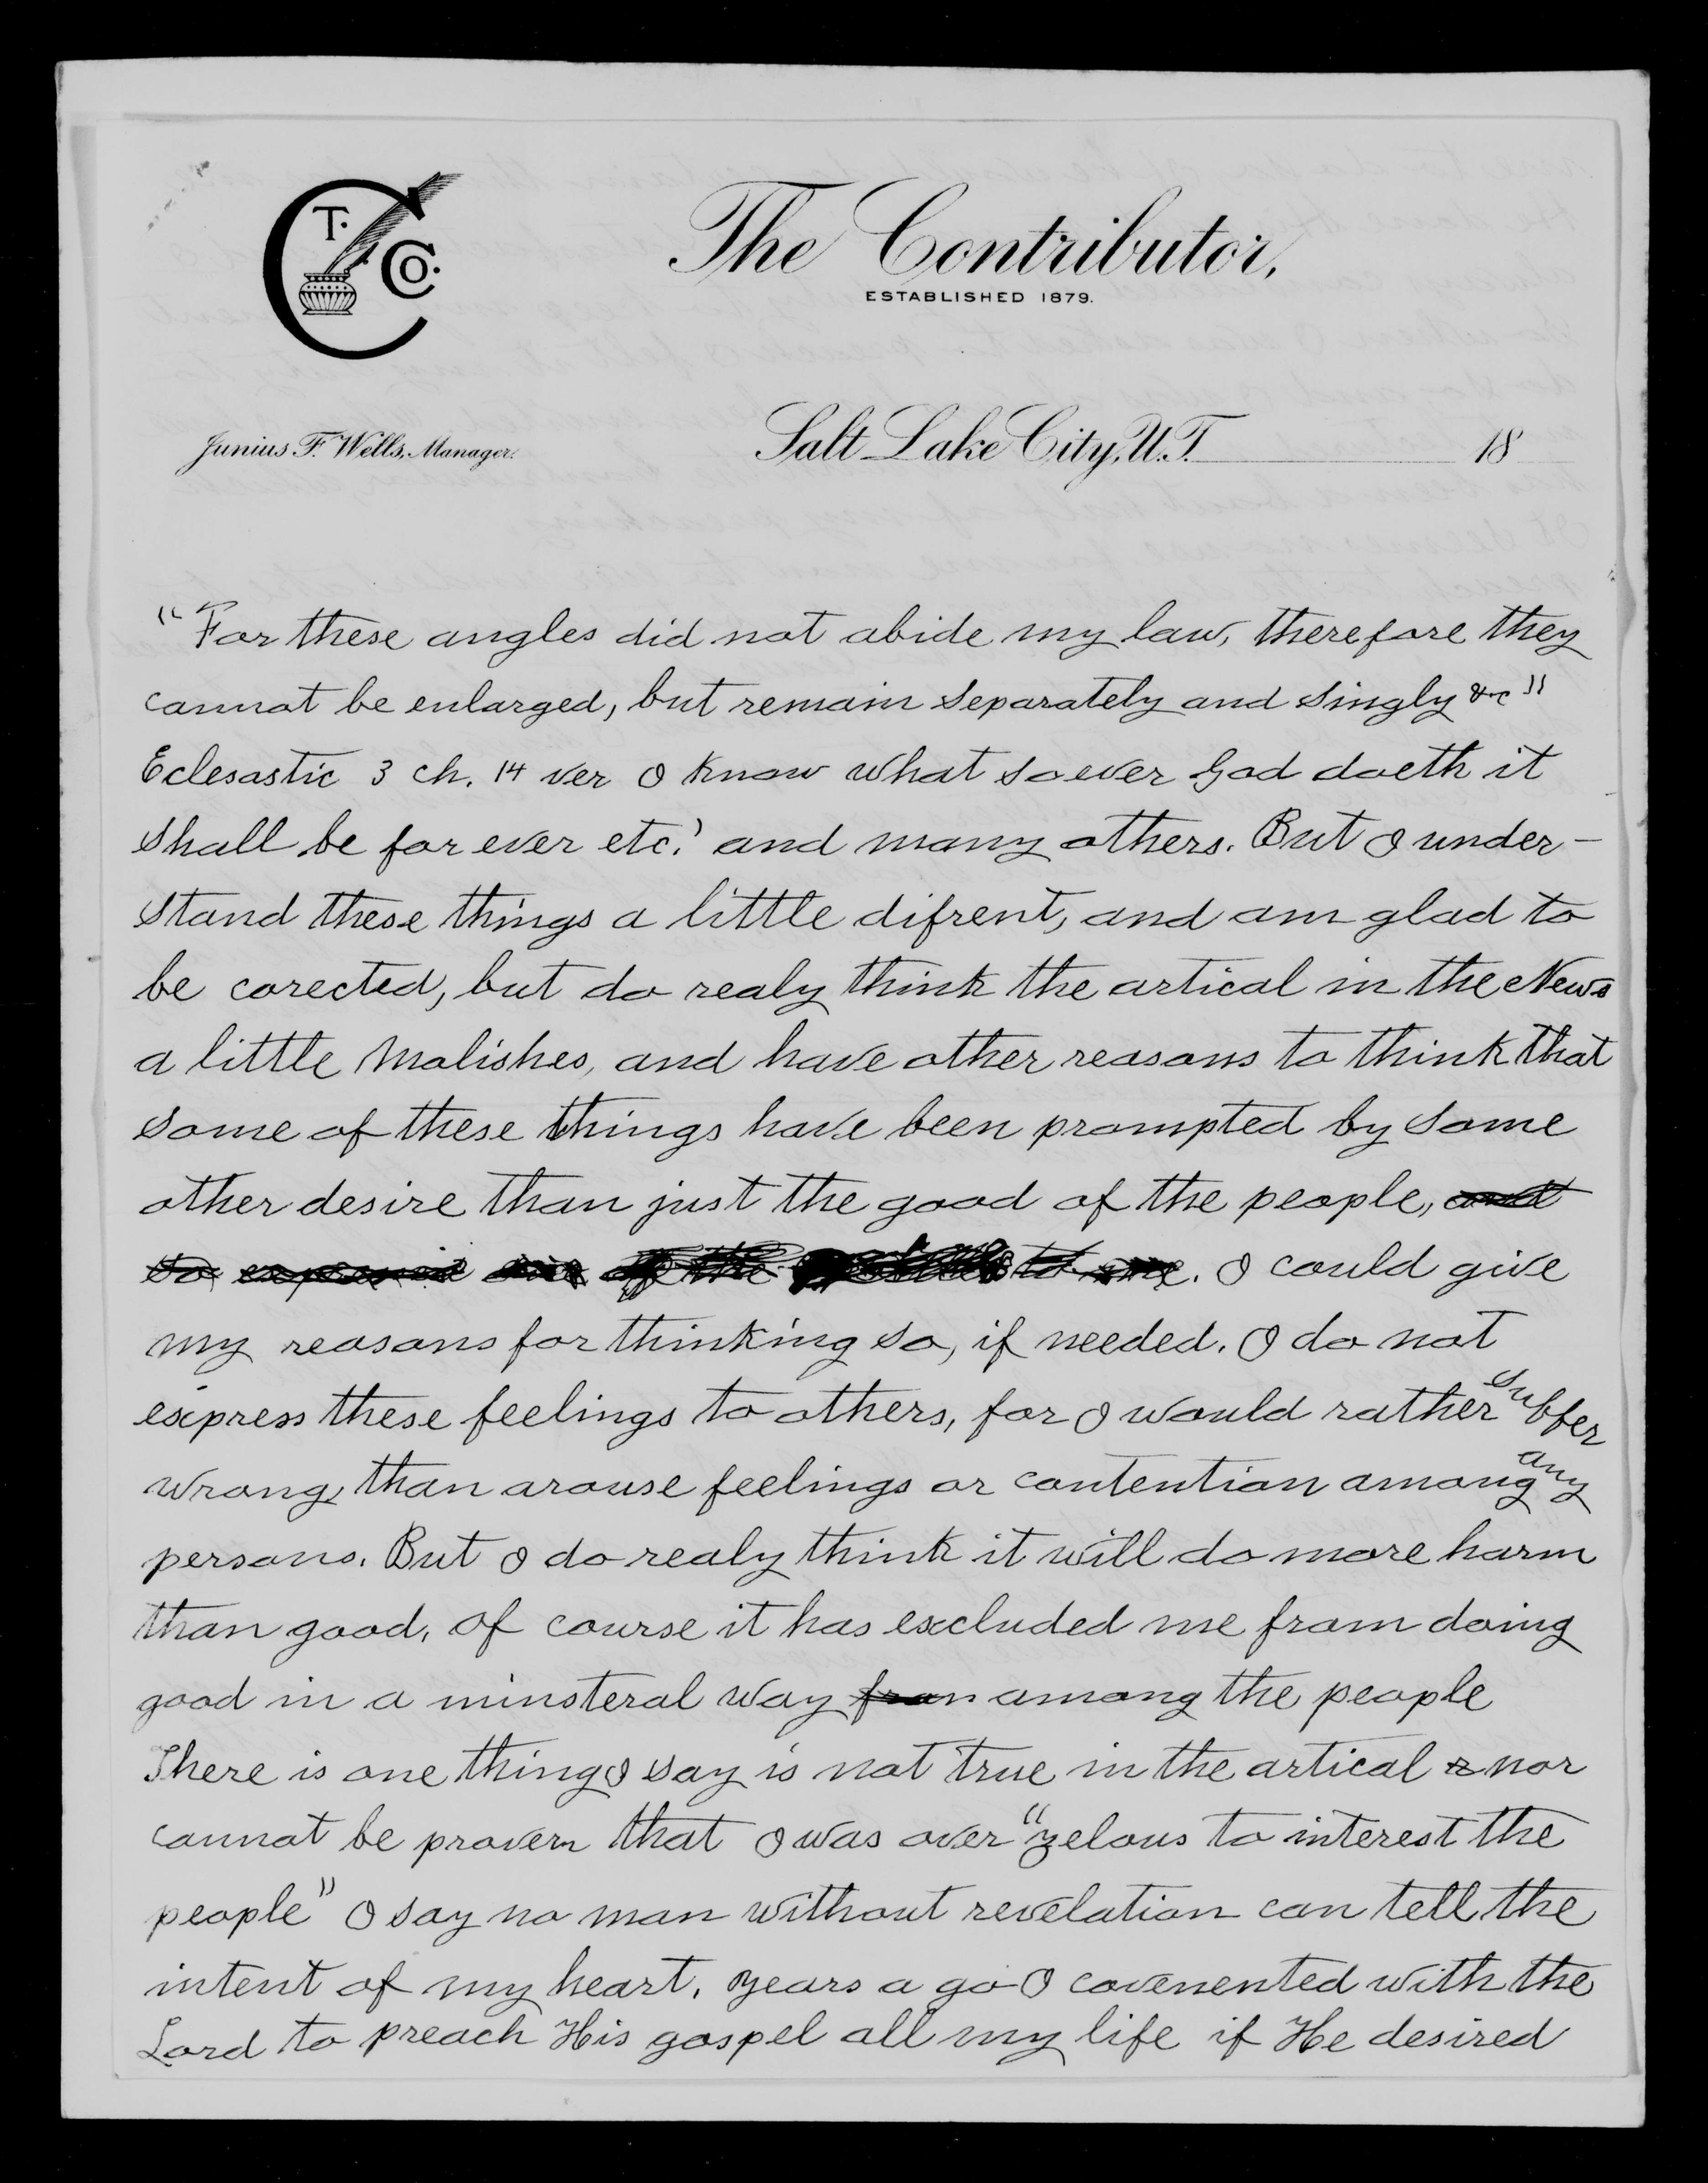 T. C Co.
The Contributor,
ESTABLISHED 1879.
Junius F. Wells, Manager.
Salt Lake City, U.T. 18
"For these angles did not abide my law, therefore they
cannot be enlarged, but remain separately and singly &c"
Eclesastic 3 ch. 14 ver I know what soever God doeth it
shall be for ever etc.' and many others. But I under-
stand these things a little difrent, and am glad to
be corected, but do realy think the artical in the News
a little malishes, and have other reasons to think that
some of these things have been prompted by some
other desire than just the good of the people, and
to of the to me. I could give
my reasons for thinking so, if needed. I do not
express these feelings to others, for I would rather suffer
wrong, than arouse feelings or contention among any
persons. But I do realy think it will do more harm
than good, of course it has excluded me from doing
good in a minsteral way from among the people
There is one thing I say is not true in the artical & nor
cannot be provern that I was over "zelous to interest the
people" I say no man without revelation can tell the
intent of my heart. years a go I covenented with the
Lord to preach His gospel all my life if He desired